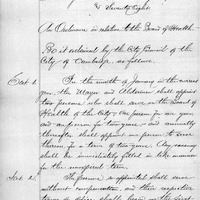 & Seventy Eight.
An Ordinance in relation to the Board of Health.
Be it ordained by the City Council of the
City of Cambridge, as follows.
Sect. 1. In the month of January in the current
year, the Mayor and Aldermen shall appoint
two persons who shall serve on the Board of
Health of the City: One person for one year
and one person for two years - and annually
thereafter shall appoint one person to serve
thereon for a term of two years. Any vacancy
shall be immediately filled in like manner
for the unexpired term.
Sect. 2. The persons so appointed shall serve
without compensation, and their respective
terms of office shall begin on the first